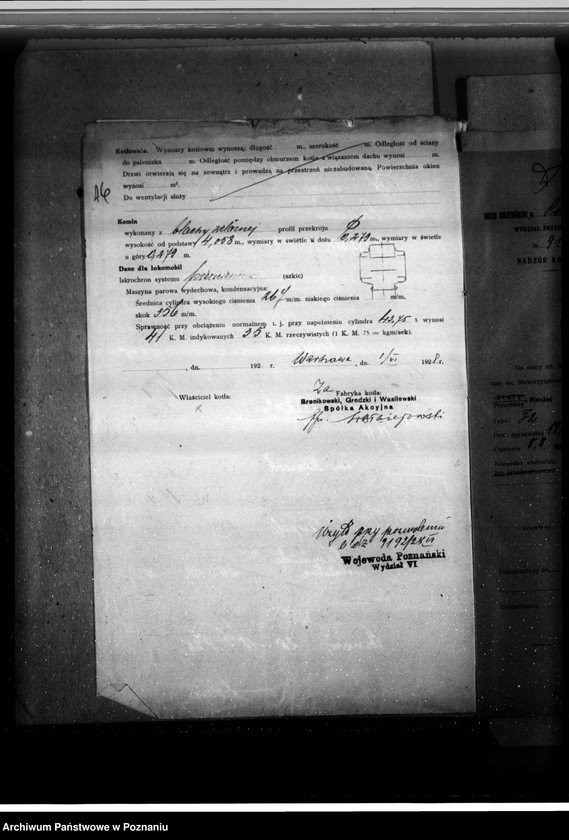 Kotłownia. Wymiary kotłowni wynoszą: długość m., szerokość m. Odległość od ściany
do paleniska m. Odległość pomiędzy obmurzem kotła a wiązaniem dachu wynosi m.
Drzwi otwierają się na zewnątrz i prowadzą na przestrzeń niezabudowaną. Powierzchnia okien
wynosi m².
Do wentylacji służy
46
Komin
wykonany z blachy żelaznej profil przekroju
wysokość od podstawy 4,058 m., wymiary w świetle u dołu 0,279 m., wymiary w świetle
u góry 0,279 m.
Dane dla lokomobil
Iskrochron systemu (szkic)
Maszyna parowa wydechowa, kondensacyjna:
Średnica cylindra wysokiego ciśnienia 267 m/m. niskiego ciśnienia m/m.
skok 336 m/m.
Sprawność przy obciążeniu normalnem t. j. przy napełnieniu cylindra 42,75 % wynosi
41 K. M. indykowanych 35 K. M. rzeczywistych (1 K. M. 75 = kgm/sek).
, dn. 192 r.
Warszawa, dn. 1/VI 1928 r.
Właściciel kotła:
Za Fabryka kotła:
Bronikowski, Grodzki i Wasilewski
Spółka Akcyjna
przy pozwoleniu
Wojewoda Poznański
Wydział VI
URZĄD WOJEWÓDZKI
WYDZIAŁ PRZEM
№
NADZÓR KO
Na mocy art.
Type
Pow. ogrzewalna
Ciśnienie 8,8
Nazwisko właściciela
Archiwum Państwowe w Poznaniu